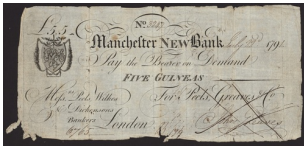 £5.5.
No.
Manchester NEW Bank July 179
Pay the Bearer on Demand
FIVE GUINEAS
Messrs. Peels, Wilkes
& Dickensons
Bankers
London
For Peels, Greaves & Co